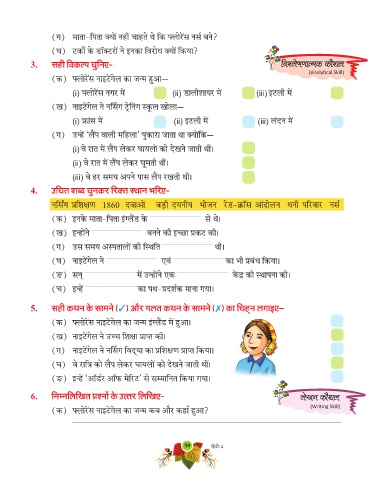 (ग) माता-पिता क्यों नहीं चाहते थे कि फ्लोरेंस नर्स बने?
(घ) टर्की के डॉक्टरों ने इनका विरोध क्यों किया?
विश्लेषणात्मक कौशल
(Analytical Skill)
3. सही विकल्प चुनिए-
(क) फ्लोरेंस नाइटेंगेल का जन्म हुआ—
(i) फ्लोरेंस नगर में (ii) डालीशायर में (iii) इटली में
(ख) नाइटेंगेल ने नर्सिंग ट्रेनिंग स्कूल खोला—
(i) फ्रांस में (ii) इटली में (iii) लंदन में
(ग) उन्हें ‘लैंप वाली महिला’ पुकारा जाता था क्योंकि—
(i) वे रात में लैंप लेकर घायलों को देखने जाती थीं।
(ii) वे रात में लैंप लेकर घूमती थीं।
(iii) वे हर समय अपने पास लैंप रखती थीं।
4. उचित शब्द चुनकर रिक्त स्थान भरिए-
नर्सिंग प्रशिक्षण 1860 दवाओं बड़ी दयनीय भोजन रेड-क्रॉस आंदोलन धनी परिवार नर्स
(क) इनके माता-पिता इंग्लैंड के से थे।
(ख) इन्होंने बनने की इच्छा प्रकट की।
(ग) उस समय अस्पतालों की स्थिति थी।
(घ) नाइटेंगेल ने एवं का भी प्रबंध किया।
(ङ) सन् में उन्होंने एक केंद्र की स्थापना की।
(च) इन्हें का पथ-प्रदर्शक माना गया।
5. सही कथन के सामने (✓) और गलत कथन के सामने (✗) का चिह्न लगाइए–
(क) फ्लोरेंस नाइटेंगेल का जन्म इंग्लैंड में हुआ।
(ख) नाइटेंगेल ने उच्च शिक्षा प्राप्त की।
(ग) नाइटेंगेल ने नर्सिंग विद्या का प्रशिक्षण प्राप्त किया।
(घ) वे रात्रि को लैंप लेकर घायलों को देखने जाती थीं।
(ङ) इन्हें ‘ऑर्डर ऑफ मेरिट’ से सम्मानित किया गया।
6. निम्नलिखित प्रश्नों के उत्तर लिखिए-
लेखन कौशल
(Writing Skill)
(क) फ्लोरेंस नाइटेंगेल का जन्म कब और कहाँ हुआ?
59 हिंदी-4